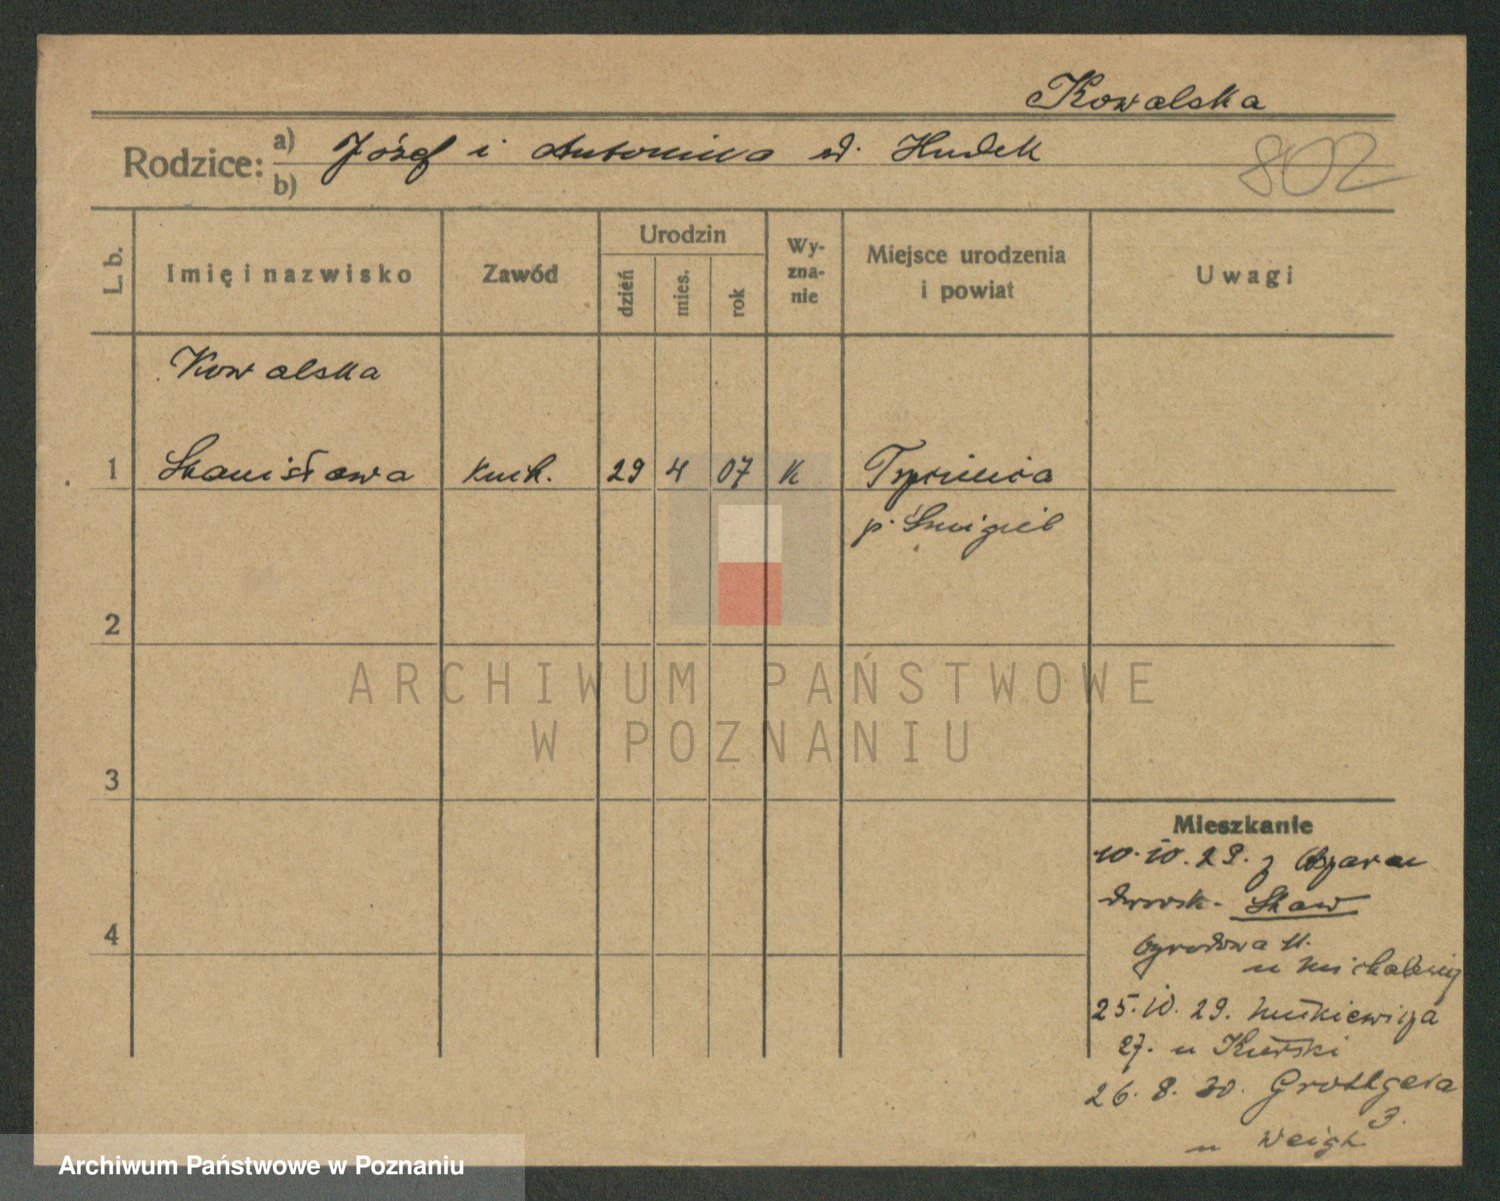 Kowalska
Rodzice: a) Józef i Antonina d. Hudek
b)
802
L. b.
Imię i nazwisko
Zawód
Urodzin
dzień
mies.
rok
Wy-
zna-
nie
Miejsce urodzenia
i powiat
Uwagi
Kowalska
1 Stanisława kuch. 29 4 07 K
p. Śmigiel
2
3
4
Mieszkanie
10.10.29. z
dworsk.
Ogrodowa 11.
u
25.10.29.
27. u
26.8.30. Grottgera
3.
u Weigh
ARCHIWUM PAŃSTWOWE
W POZNANIU
Archiwum Państwowe w Poznaniu